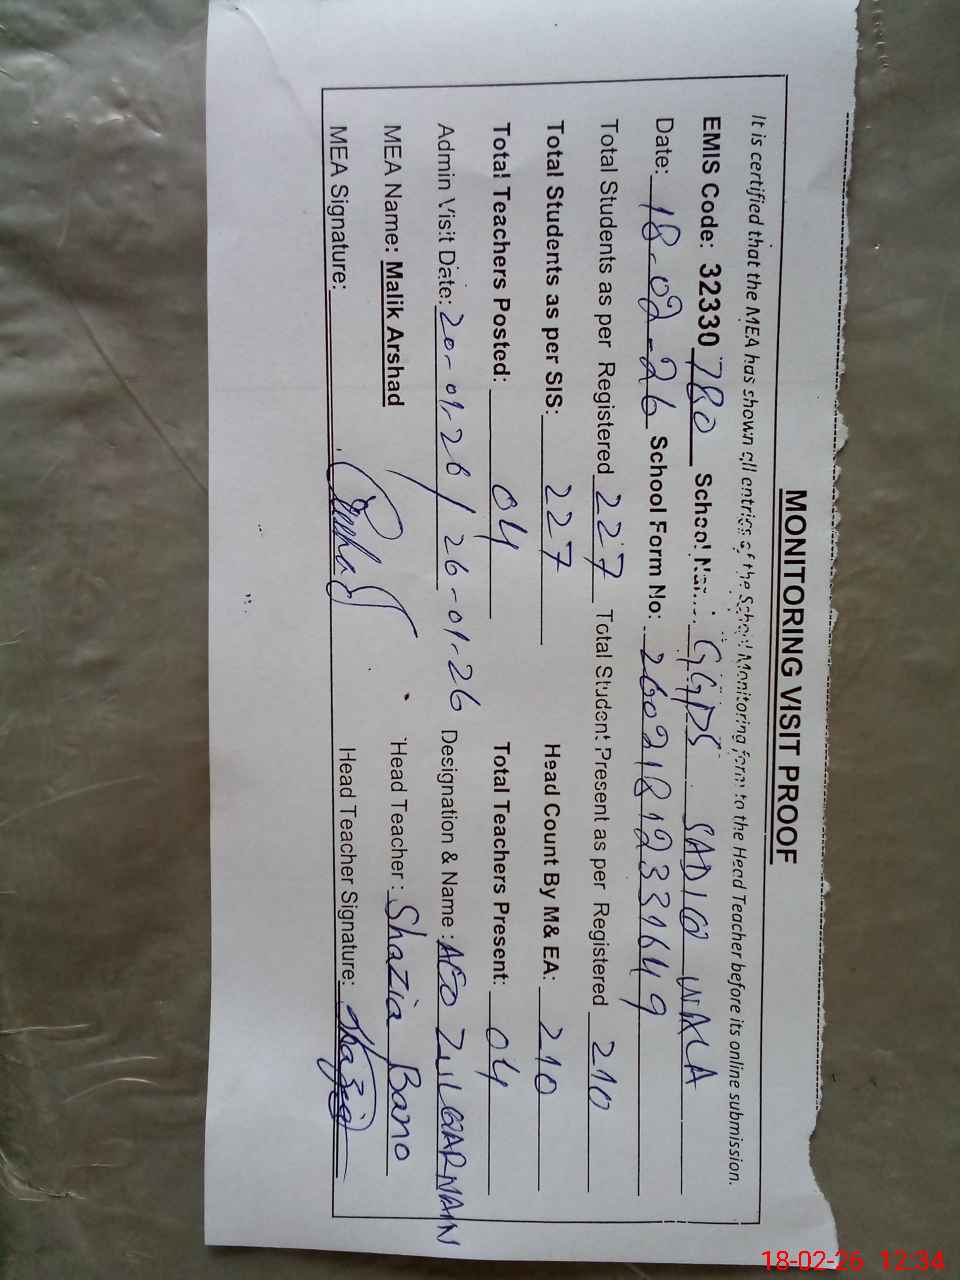 MONITORING VISIT PROOF
It is certified that the MEA has shown all entries of the School Monitoring form to the Head Teacher before its online submission.
EMIS Code: 32330 780 School Nam.. GGPS SADIQ WALA
Date: 18-02-26 School Form No: 26021812331649
Total Students as per Registered 227 Total Student Present as per Registered 210
Total Students as per SIS: 227 Head Count By M& EA: 210
Total Teachers Posted: 04 Total Teachers Present: 04
Admin Visit Date: 20-01-26 / 26-01-26 Designation & Name: AEO ZULQARNAIN
MEA Name: Malik Arshad Head Teacher: Shazia Bano
MEA Signature: Head Teacher Signature: Shazia
18-02-26 12:34